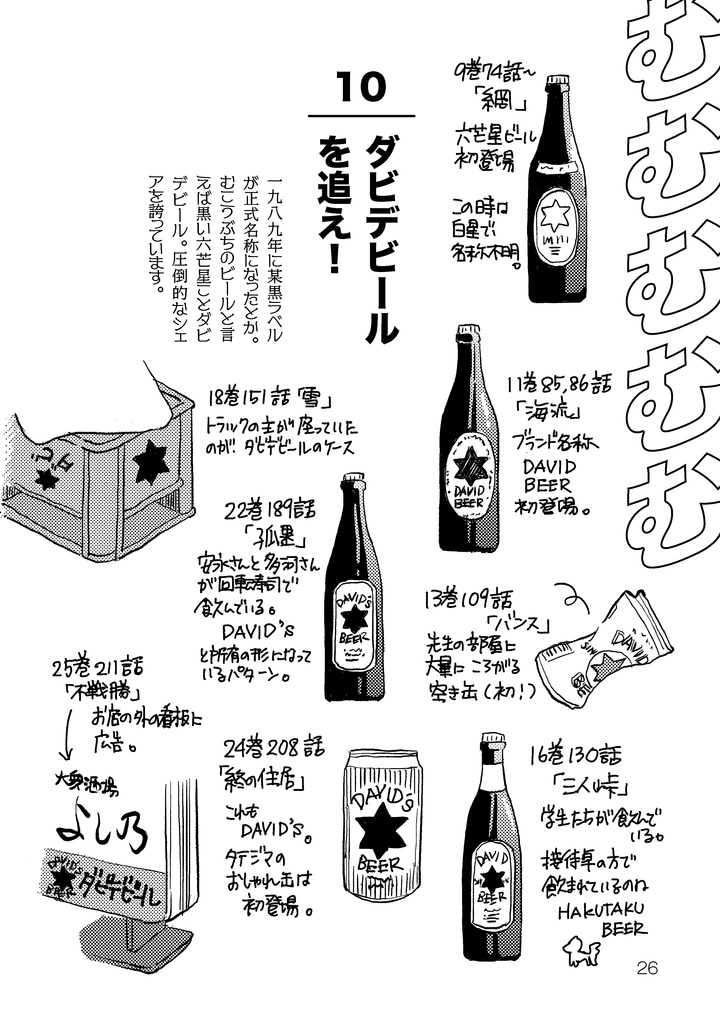 むむむむむ
10
ダビデビール
を追え！
一九八九年に某黒ラベル
が正式名称になったとか。
むこうぶちのビールと言
えば黒い六芒星ことダビ
デビール。圧倒的なシェ
アを誇っています。
9巻74話〜
「網」
六芒星ビール
初登場
この時は
白星で
名称不明。
11巻85,86話
「海流」
ブランド名称
DAVID
BEER
初登場。
DAVID
BEER
18巻151話「雪」
トラックの主が座っていた
のが、ダビデビールのケース
22巻189話
「孤塁」
安永さんと多河さん
が回転寿司で
飲んでいる。
DAVID'S
と所有の形になって
いるパターン。
DAVID'S
BEER
13巻109話
「バンス」
先生の部屋に
大量にころがる
空き缶(初!)
DAVID
25巻211話
「不戦勝」
お店の外の看板に
広告。
大衆酒場
よし乃
DAVID'S
BEER
ダビデビール
24巻208話
「終の住居」
これも
DAVID'S。
タテジマの
おしゃれ缶は
初登場。
DAVID'S
BEER
16巻130話
「三人峠」
学生たちが飲んで
いる。
接待卓の方で
飲まれているのは
HAKUTAKU
BEER
DAVID
BEER
26